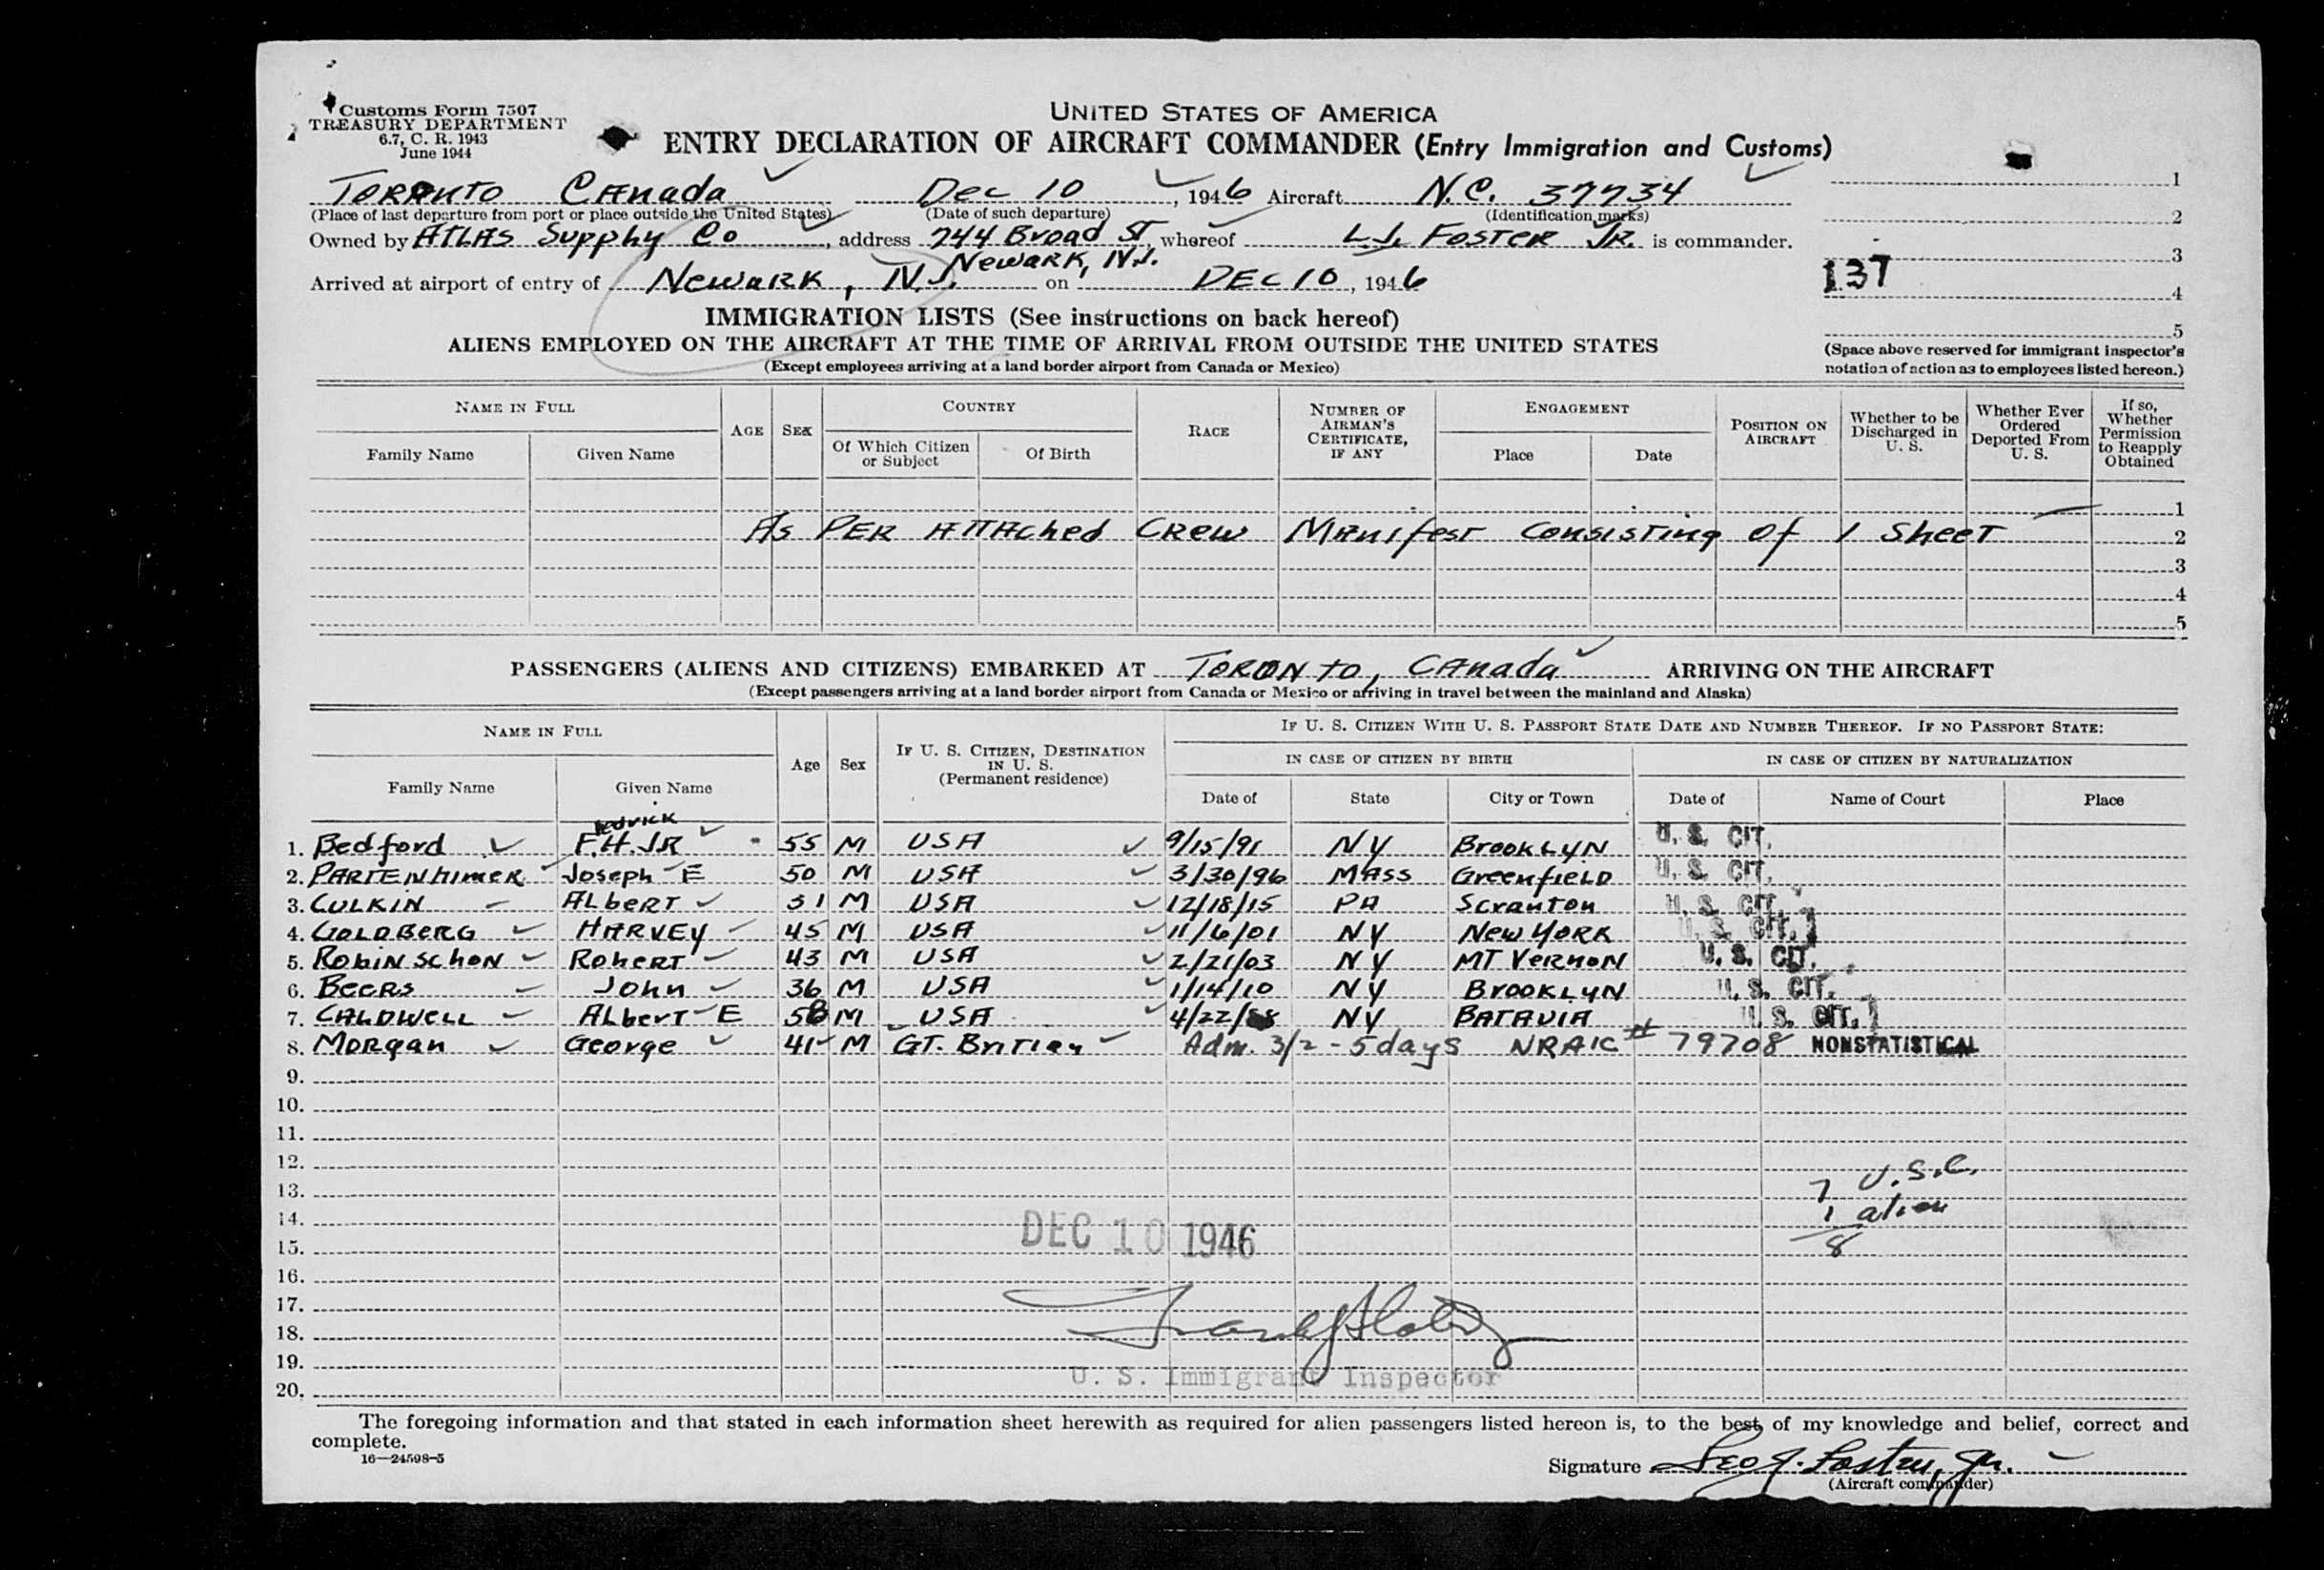 Customs Form 7507
TREASURY DEPARTMENT
6.7, C. R. 1943
June 1944
UNITED STATES OF AMERICA
ENTRY DECLARATION OF AIRCRAFT COMMANDER (Entry Immigration and Customs)
Toronto Canada Dec 10, 1946 Aircraft N.C. 37734 1
(Place of last departure from port or place outside the United States) (Date of such departure) (Identification marks)
2
Owned by Atlas Supply Co, address 744 Broad St, whereof L.J. Foster Jr. is commander.
Newark, N.J.
3
Arrived at airport of entry of Newark, N.J. on Dec 10, 1946
137 4
5
IMMIGRATION LISTS (See instructions on back hereof)
ALIENS EMPLOYED ON THE AIRCRAFT AT THE TIME OF ARRIVAL FROM OUTSIDE THE UNITED STATES
(Except employees arriving at a land border airport from Canada or Mexico)
(Space above reserved for immigrant inspector's
notation of action as to employees listed hereon.)
NAME IN FULL
Family Name Given Name
AGE SEX
COUNTRY
Of Which Citizen or Subject Of Birth
RACE
NUMBER OF AIRMAN'S CERTIFICATE, IF ANY
ENGAGEMENT
Place Date
POSITION ON AIRCRAFT
Whether to be Discharged in U. S.
Whether Ever Ordered Deported From U. S.
If so, Whether Permission to Reapply Obtained
1
As per attached crew manifest consisting of 1 sheet 2
3
4
5
PASSENGERS (ALIENS AND CITIZENS) EMBARKED AT Toronto, Canada ARRIVING ON THE AIRCRAFT
(Except passengers arriving at a land border airport from Canada or Mexico or arriving in travel between the mainland and Alaska)
NAME IN FULL
Family Name Given Name
Age Sex
IF U. S. CITIZEN, DESTINATION IN U. S. (Permanent residence)
IF U. S. CITIZEN WITH U. S. PASSPORT STATE DATE AND NUMBER THEREOF. IF NO PASSPORT STATE:
IN CASE OF CITIZEN BY BIRTH IN CASE OF CITIZEN BY NATURALIZATION
Date of State City or Town Date of Name of Court Place
1. Bedford F.H. JR 55 M USA 9/15/91 NY Brooklyn U. S. CIT.
2. Partenhimer Joseph E 50 M USA 3/30/96 Mass Greenfield U. S. CIT.
3. Culkin Albert 31 M USA 12/18/15 PA Scranton U. S. CIT.
4. Goldberg Harvey 45 M USA 11/6/01 NY New York U. S. CIT.
5. Robinschon Robert 43 M USA 2/21/03 NY Mt Vernon U. S. CIT.
6. Beers John 36 M USA 1/14/10 NY Brooklyn U. S. CIT.
7. Caldwell Albert E 58 M USA 4/22/88 NY Batavia U. S. CIT.
8. Morgan George 41 M Gt. Britian Adm. 3/2 - 5 days NRAIC # 79708 NONSTATISTICAL
9.
10.
11.
12.
13. 7 U.S.C.
14. 1 alien
15. 8
DEC 10 1946
16.
17.
18.
19.
U. S. Immigrant Inspector
20.
The foregoing information and that stated in each information sheet herewith as required for alien passengers listed hereon is, to the best of my knowledge and belief, correct and
complete.
16—24598-5
Signature Leo J. Foster, Jr.
(Aircraft commander)